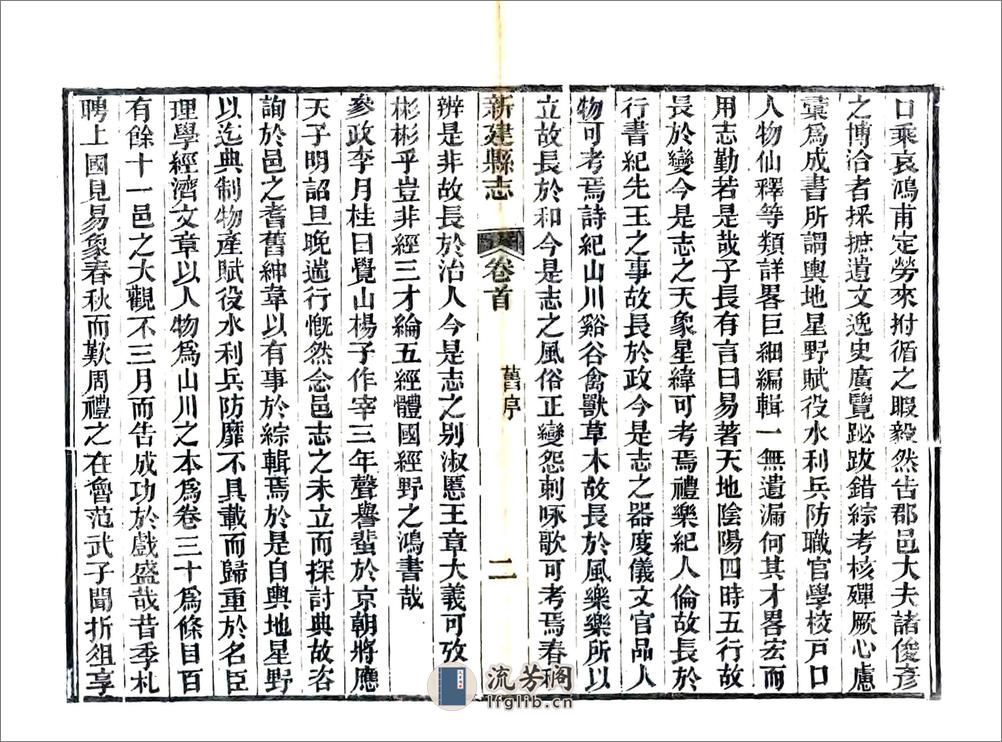 口乘哀鴻甫定勞來拊循之暇毅然古郡邑大夫諸俊彥
之博洽者採摭遺文逸史廣覽跋錯綜考核殫厥心慮
彙爲成書所謂輿地星野賦役水利兵防職官學校戸口
人物仙釋等類詳畧巨細編輯一無遺漏何其才畧宏而
用志勤若是哉子長有言曰易著天地陰陽四時五行故
長於變今是志之天象星緯可考焉禮樂紀人倫故長於
行書紀先王之事故長於政今是志之器度儀文官品人
物可考焉詩紀山川谿谷禽獸草木故長於風樂樂所以
立故長於和今是志之風俗正變怨刺咏歌可考焉春秋
新建縣志 卷首 舊序 二
辨是非故長於治人今是志之別淑慝王章大義可攷
彬彬乎豈非經三才綸五經體國經野之鴻書哉
參政李月桂曰覺山楊子作宰三年聲譽蜚於京朝將應
天子明詔旦晚遄行慨然念邑志之未立而探討典故咨
詢於邑之耆舊紳韋以有事於綜輯焉於是自輿地星野
以迄典制物產賦役水利兵防靡不具載而歸重於名臣
理學經濟文章以人物爲山川之本爲卷三十爲條目百
有餘十一邑之大觀不三月而告成功於戲盛哉昔季札
聘上國見易象春秋而歎周禮之在魯范武子聞折俎享
流芳阁
lfglib.cn